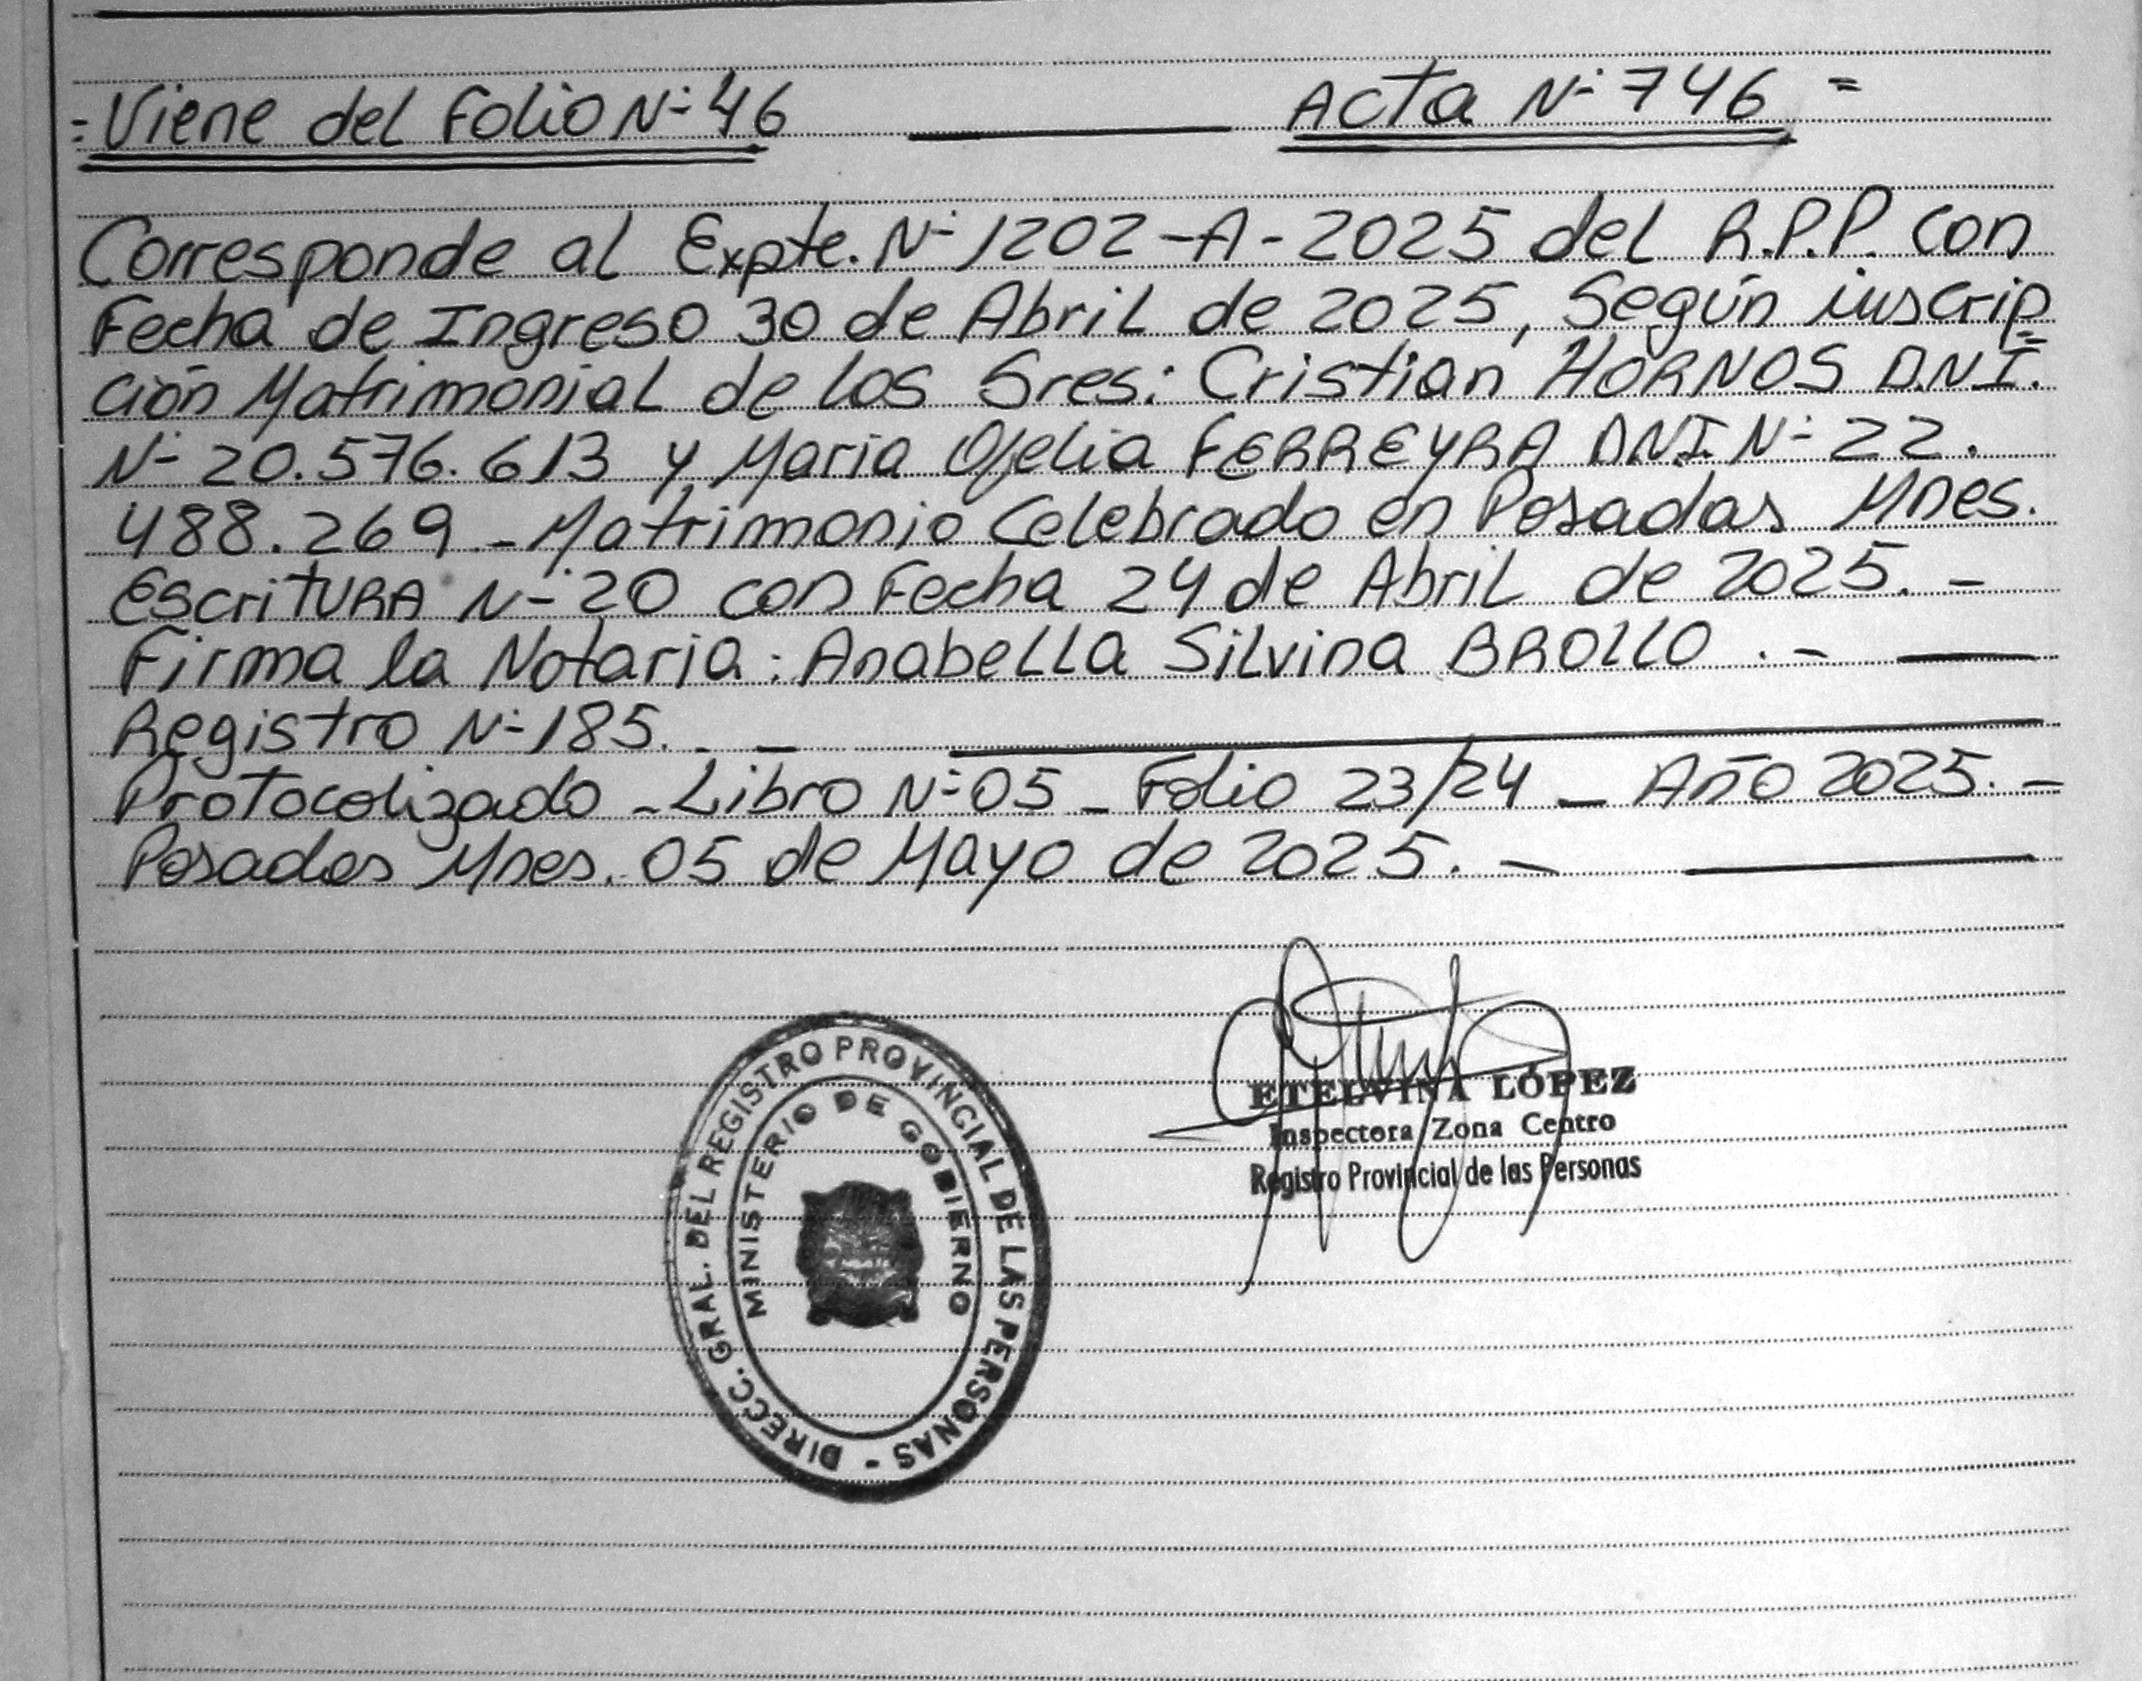 =Viene del Folio Nº 46 ——— Acta Nº 746 =
Corresponde al Expte. Nº 1202-A-2025 del R.P.P. con
Fecha de Ingreso 30 de Abril de 2025, Según inscrip=
ción Matrimonial de los Sres: Cristian HORNOS D.N.I.
Nº 20.576.613 y Maria Ofelia FERREYRA DNI Nº 22.
488.269 - Matrimonio Celebrado en Posadas Mnes.
Escritura Nº 20 con Fecha 24 de Abril de 2025. -
Firma la Notaria: Anabella Silvina BROLLO . - ——
Registro Nº 185. - — ———
Protocolizado - Libro Nº 05 - Folio 23/24 - Año 2025. -
Posadas Mnes. 05 de Mayo de 2025. - ———
DIRECC. GRAL. DEL REGISTRO PROVINCIAL DE LAS PERSONAS -
MINISTERIO DE GOBIERNO
ETELVINA LÓPEZ
Inspectora Zona Centro
Registro Provincial de las Personas